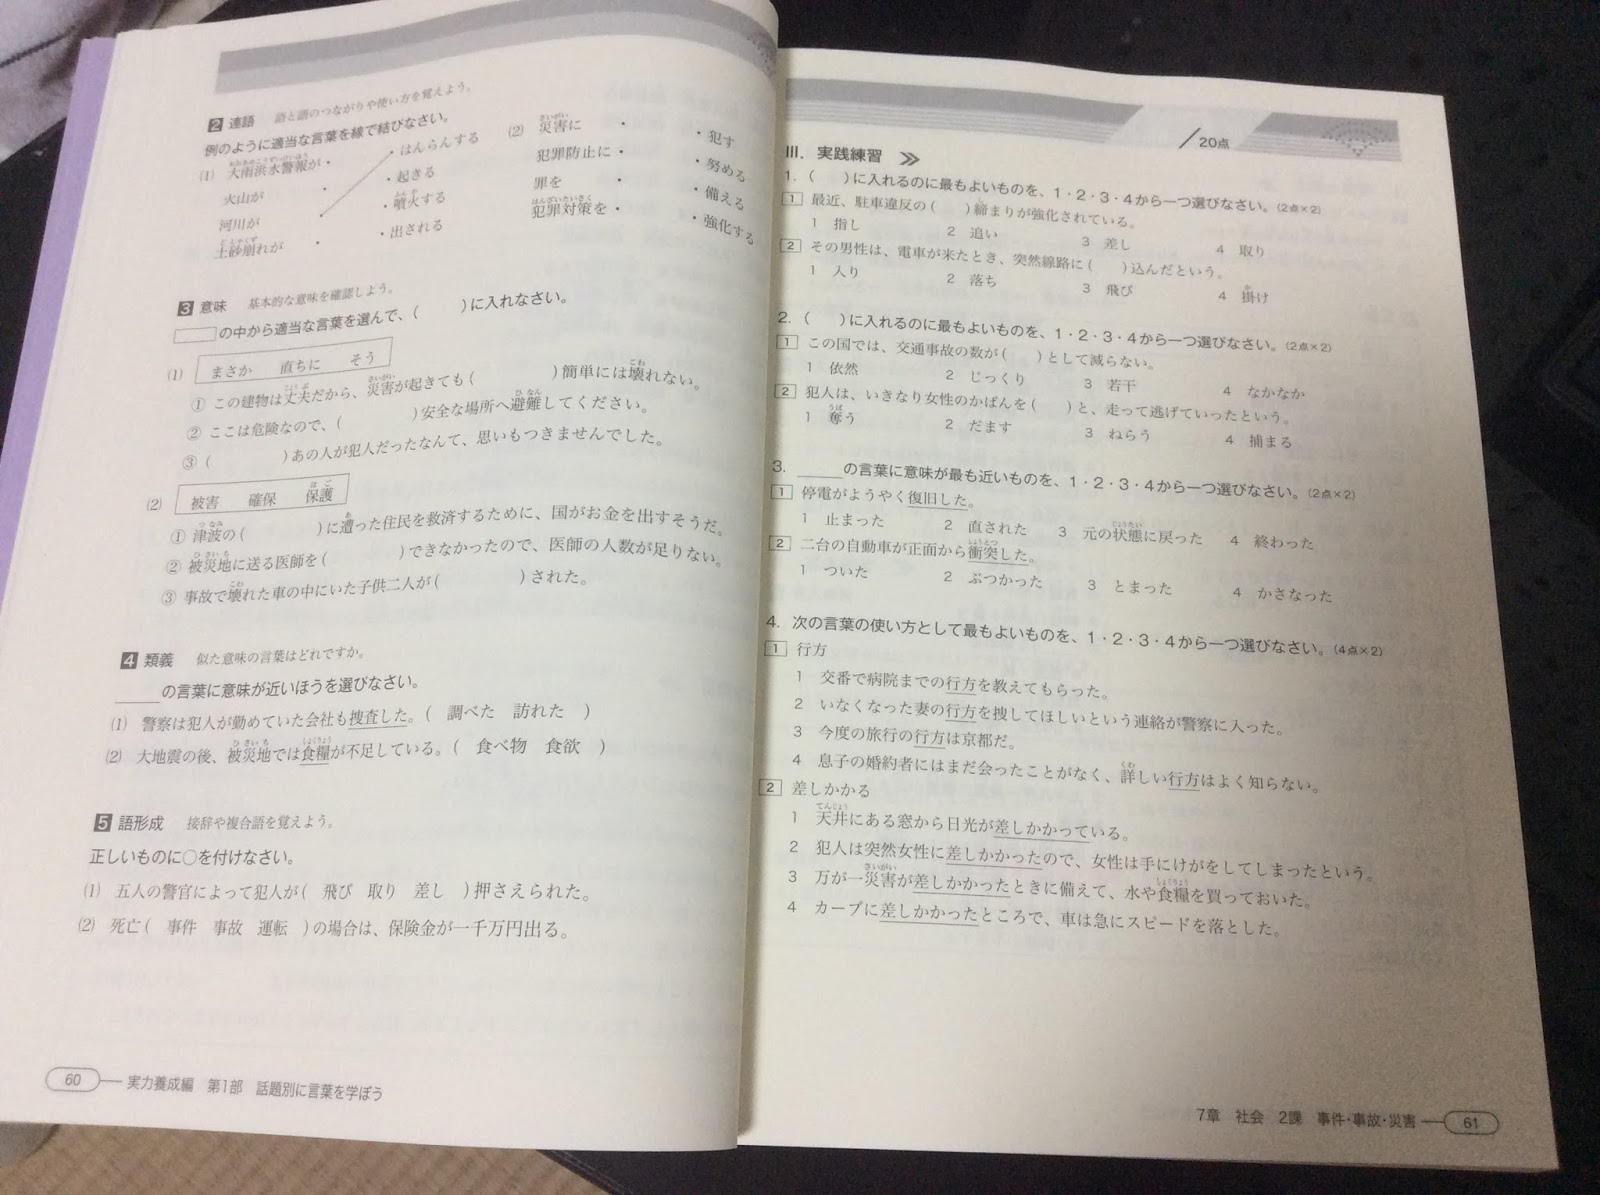 2 連語 語と語のつながりや使い方を覚えよう。
例のように適当な言葉を線で結びなさい。
(1) 大雨洪水警報が・ ・はんらんする
火山が ・ ・起きる
河川が ・噴火する
土砂崩れが ・ ・出される
(2) 災害に ・ ・犯す
犯罪防止に・ ・努める
罪を ・ ・備える
犯罪対策を・ ・強化する
3 意味 基本的な意味を確認しよう。
の中から適当な言葉を選んで、( )に入れなさい。
(1) まさか 直ちに そう
① この建物は丈夫だから、災害が起きても( )簡単には壊れない。
② ここは危険なので、( )安全な場所へ避難してください。
③ ( )あの人が犯人だったなんて、思いもつきませんでした。
(2) 被害 確保 保護
① 津波の( )に遭った住民を救済するために、国がお金を出すそうだ。
② 被災地に送る医師を( )できなかったので、医師の人数が足りない。
③ 事故で壊れた車の中にいた子供二人が( )された。
4 類義 似た意味の言葉はどれですか。
＿＿の言葉に意味が近いほうを選びなさい。
(1) 警察は犯人が勤めていた会社も捜査した。( 調べた 訪れた )
(2) 大地震の後、被災地では食糧が不足している。( 食べ物 食欲 )
5 語形成 接辞や複合語を覚えよう。
正しいものに○を付けなさい。
(1) 五人の警官によって犯人が( 飛び 取り 差し )押さえられた。
(2) 死亡( 事件 事故 運転 )の場合は、保険金が一千万円出る。
60 実力養成編 第1部 話題別に言葉を学ぼう
/20点
III. 実践練習
1. ( )に入れるのに最もよいものを、1・2・3・4から一つ選びなさい。(2点×2)
1 最近、駐車違反の( )締まりが強化されている。
1 指し 2 追い 3 差し 4 取り
2 その男性は、電車が来たとき、突然線路に( )込んだという。
1 入り 2 落ち 3 飛び 4 掛け
2. ( )に入れるのに最もよいものを、1・2・3・4から一つ選びなさい。(2点×2)
1 この国では、交通事故の数が( )として減らない。
1 依然 2 じっくり 3 若干 4 なかなか
2 犯人は、いきなり女性のかばんを( )と、走って逃げていったという。
1 奪う 2 だます 3 ねらう 4 捕まる
3. ＿＿の言葉に意味が最も近いものを、1・2・3・4から一つ選びなさい。(2点×2)
1 停電がようやく復旧した。
1 止まった 2 直された 3 元の状態に戻った 4 終わった
2 二台の自動車が正面から衝突した。
1 ついた 2 ぶつかった 3 とまった 4 かさなった
4. 次の言葉の使い方として最もよいものを、1・2・3・4から一つ選びなさい。(4点×2)
1 行方
1 交番で病院までの行方を教えてもらった。
2 いなくなった妻の行方を捜してほしいという連絡が警察に入った。
3 今度の旅行の行方は京都だ。
4 息子の婚約者にはまだ会ったことがなく、詳しい行方はよく知らない。
2 差しかかる
1 天井にある窓から日光が差しかかっている。
2 犯人は突然女性に差しかかったので、女性は手にけがをしてしまったという。
3 万が一災害が差しかかったときに備えて、水や食糧を買っておいた。
4 カーブに差しかかったところで、車は急にスピードを落とした。
7章 社会 2課 事件・事故・災害 61